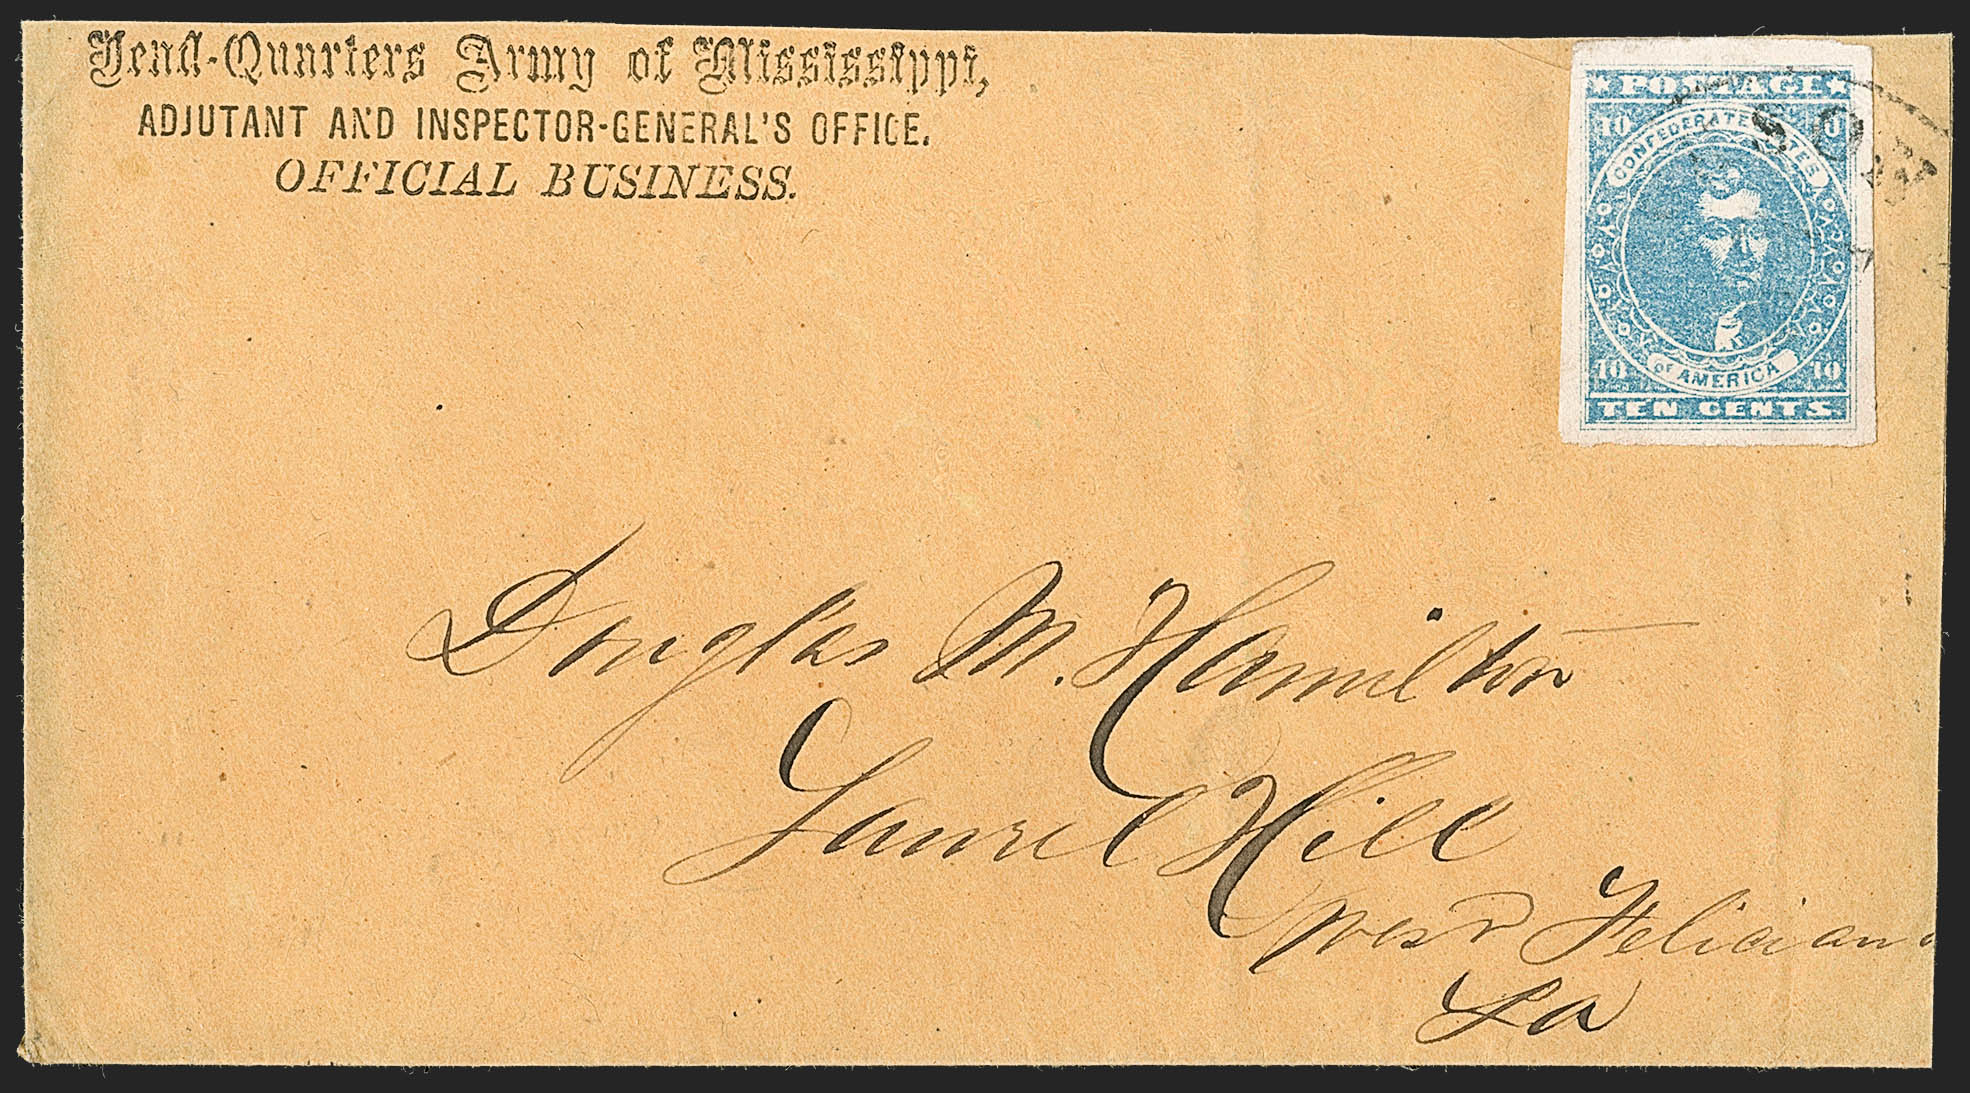 Head-Quarters Army of Mississippi,
ADJUTANT AND INSPECTOR-GENERAL'S OFFICE.
OFFICIAL BUSINESS.
★ POSTAGE ★
10 10
CONFEDERATE STATES
OF AMERICA
10 10
TEN CENTS
Douglas M. Hamilton
Laurel Hill
West Feliciana
La